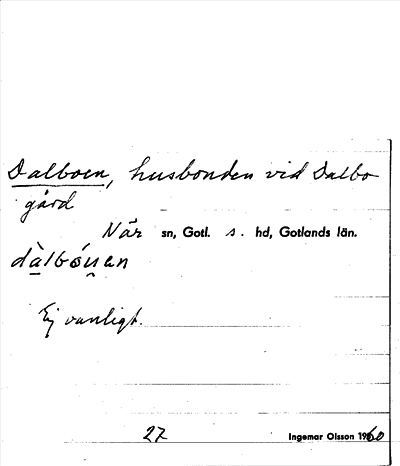 Dalboen, husbonden vid Dalbo
gård
När sn, Gotl. s. hd, Gotlands län.
Ej vanligt.
27 Ingemar Olsson 1960